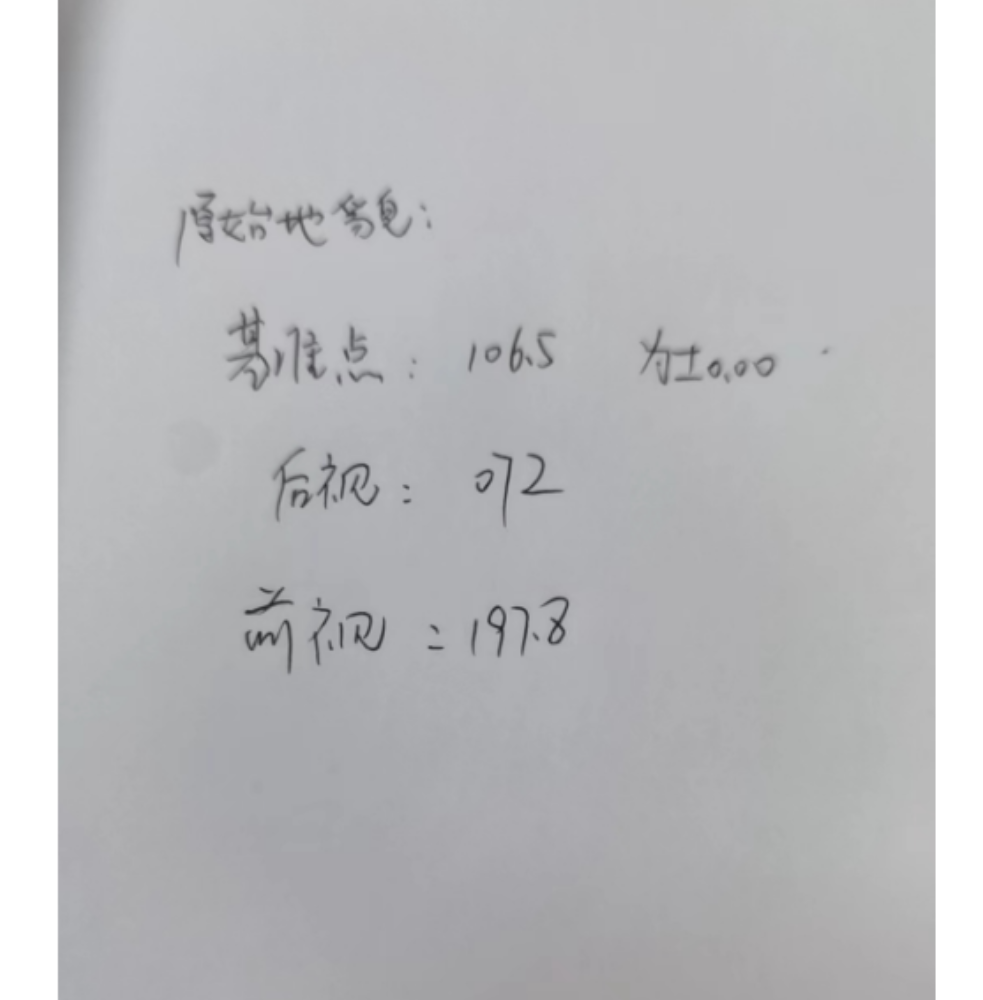 原始地貌：
基准点：106.5 为±0.00
后视：072
前视：197.8